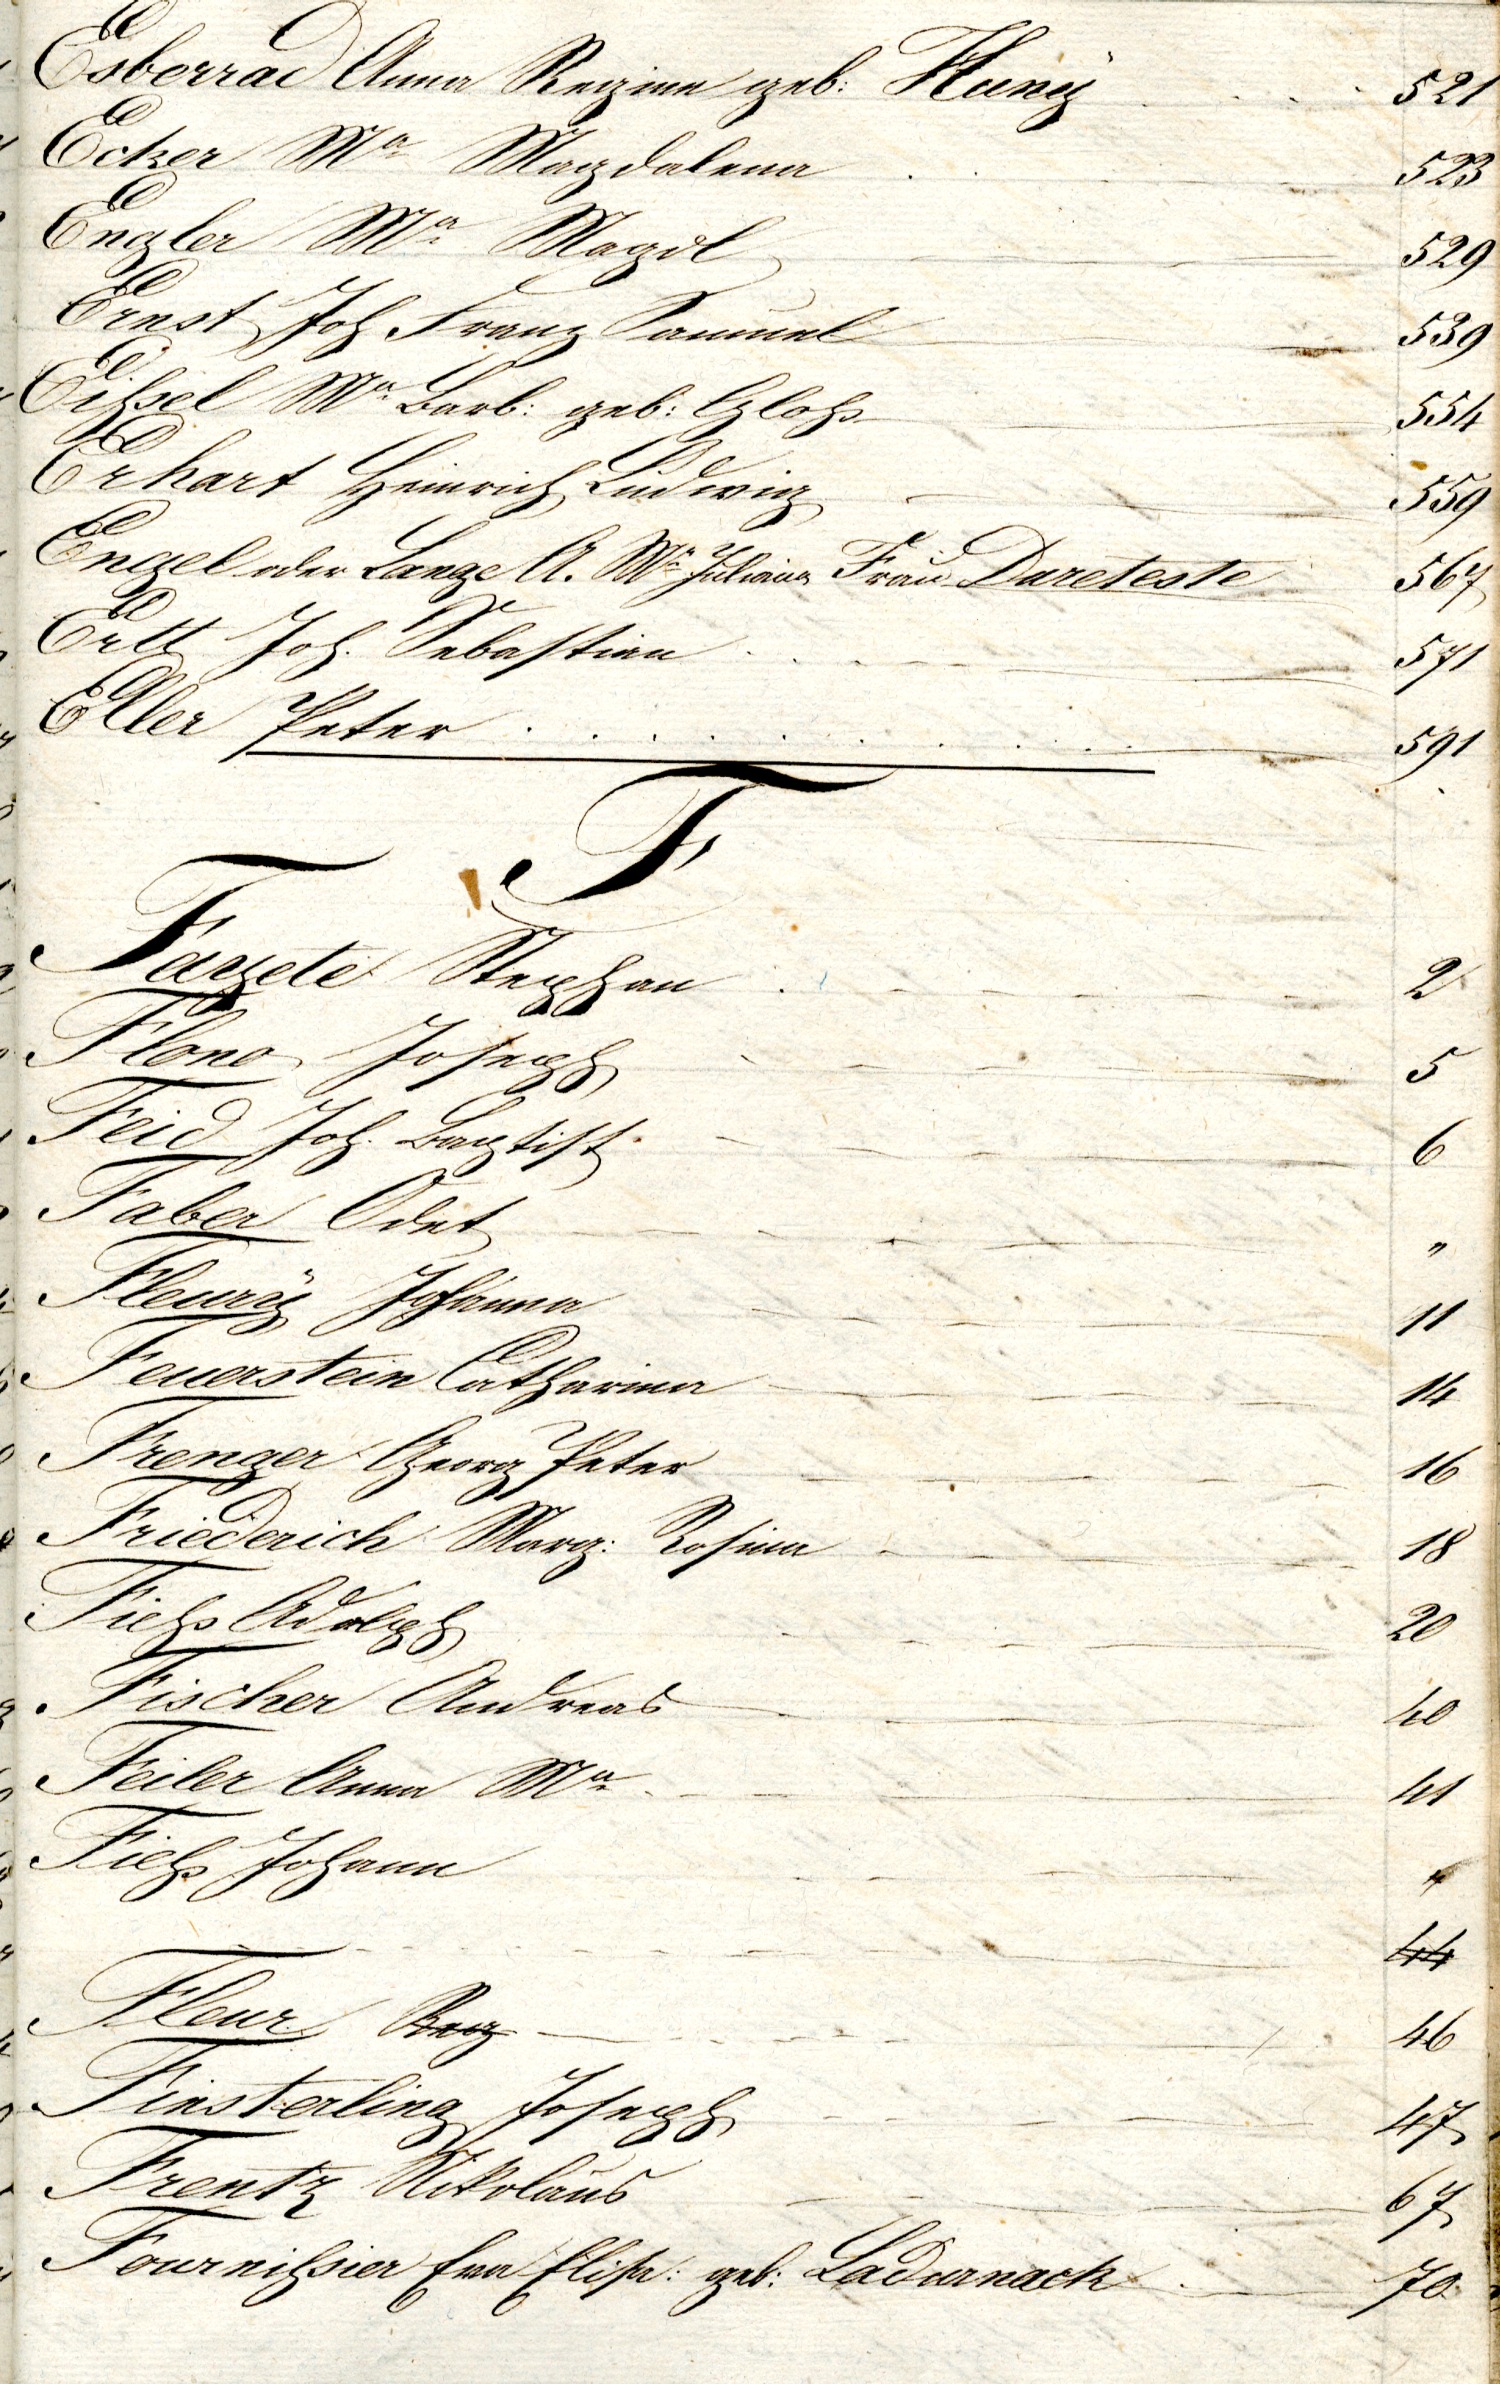 Esberrad Anna Regina geb: Huny 521
Ecker Ma Magdalena 523
Engler Ma Magdl 529
Ernst Joh Franz Samuel 539
Eihsel Ma Barb: geb: Glohs 554
Erhart Heinrich Ludwig 559
Engel oder Lange A. Ma Juliana Frau Dareteste 567
Ertt Joh. Sebastian 571
Eller Peter 591
F
Fayete Stephan 2
Flono Joseph 5
Feid Joh. Baptist 6
Faber Odet "
Fleurÿ Johanna 11
Feuerstein Catharina 14
Frenger Georg Peter 16
Friederich Marg: Rosina 18
Fiehs Adolph 20
Fischer Andreas 40
Feiler Anna Ma 41
Fiehs Johann "
44
Fleur Reg 46
Finsterling Joseph 47
Frentz Nikolaus 67
Fournihsier Eva Elisa: geb: Ladurnack 70